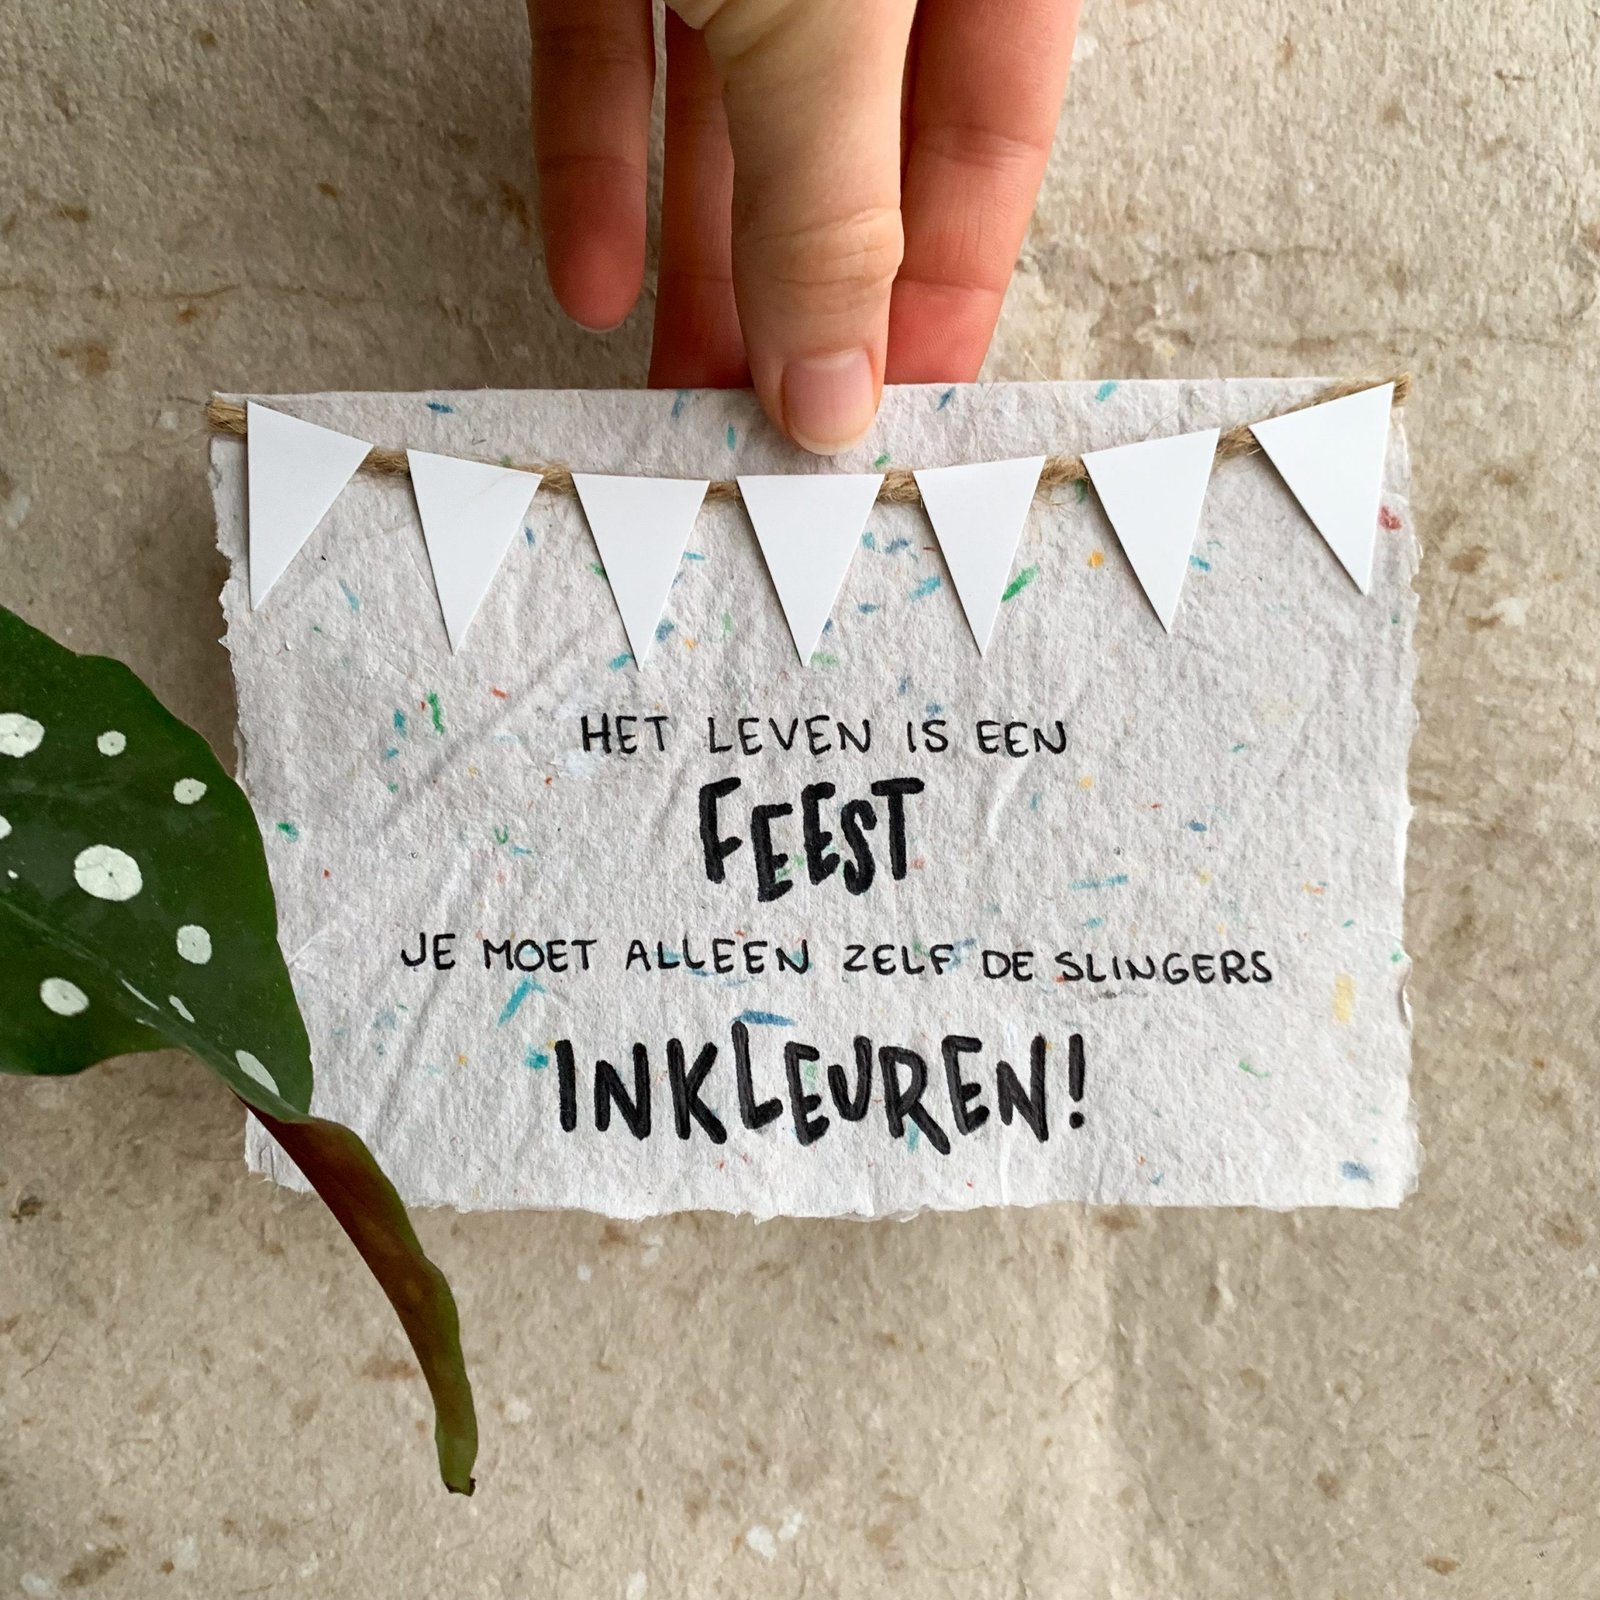 HET LEVEN IS EEN
FEEST
JE MOET ALLEEN ZELF DE SLINGERS
INKLEUREN!